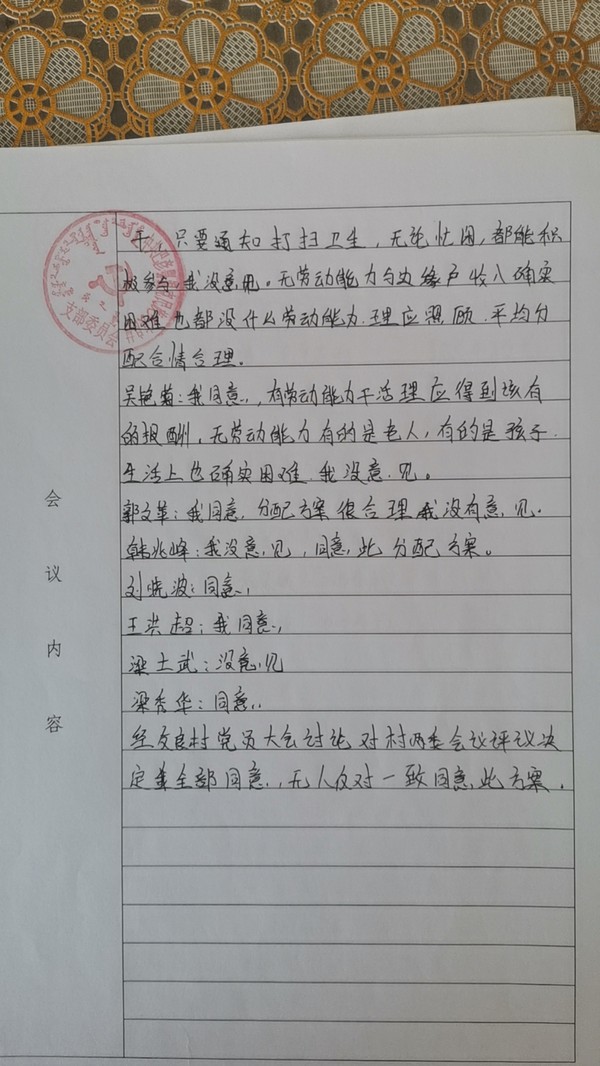 只要通知打扫卫生，无论忙闲，都能积
极参与，我没意见。无劳动能力与边缘户收入确实
困难也都没什么劳动能力.理应照顾.平均分
配合情合理。
吴艳菊：我同意，有劳动能力干活理应得到该有
的报酬，无劳动能力有的是老人，有的是孩子.
生活上也确实困难.我没意见。
郭文革：我同意，分配方案很合理我没有意见.
韩兆峰：我没意见，同意此分配方案。
刘晓波：同意，
王洪超：我同意，
梁士武：没意见
梁秀华：同意，
经友良村党员大会讨论对村两委会议评议决
定全部同意，无人反对一致同意此方案.
会议内容
支部委员会